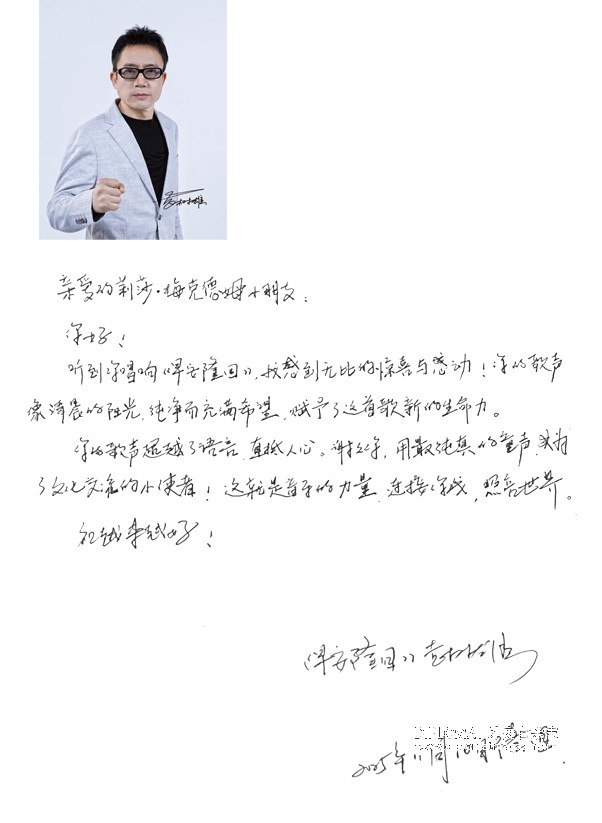 亲爱的莉莎·梅克德姆小朋友：
你好！
听到你唱响《早安隆回》，我感到无比的惊喜与感动！你的歌声
像清晨的阳光，纯净而充满希望，赋予了这首歌新的生命力。
你的歌声超越了语言，直抵人心。谢谢你，用最纯真的童声，成为
了文化交流的小使者！这就是音乐的力量，连接你我，照亮世界。
祝越来越好！
《早安隆回》袁树雄
2025年11月10日